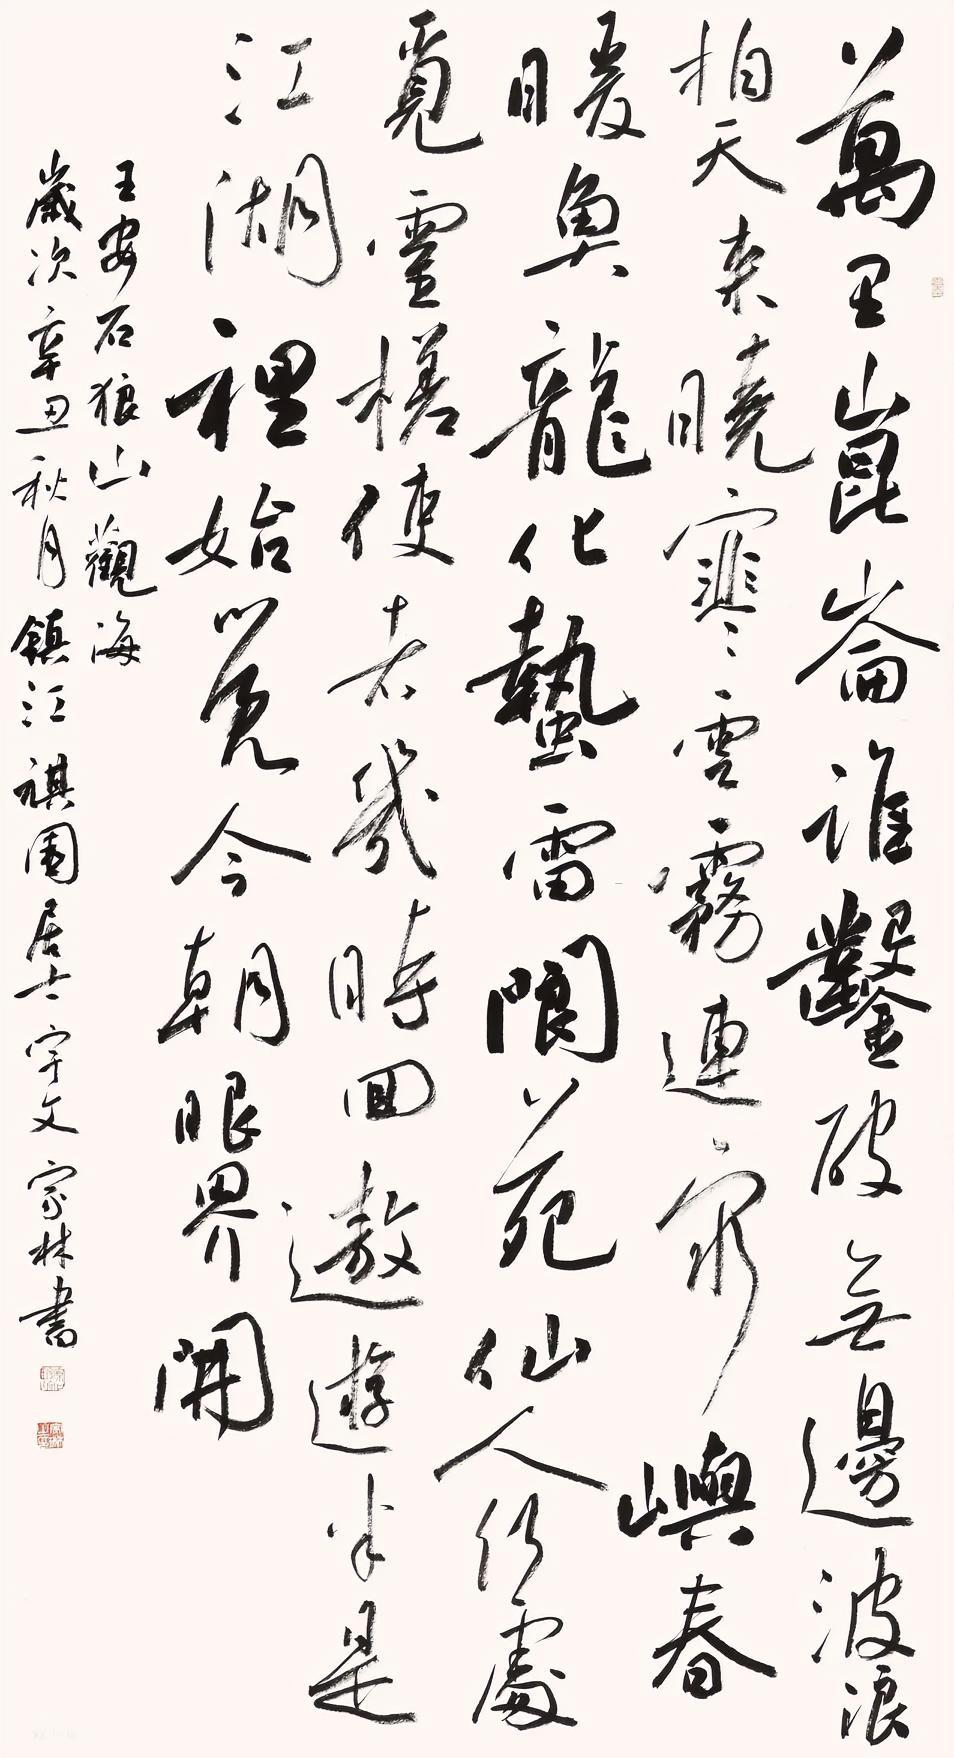 萬里崑崙誰鑿破無邊波浪
拍天來曉寒雲霧連穷嶼春
暖魚龍化蟄雷閬苑仙人何處
覓靈槎使者幾時回遨遊半是
江湖裡始覺今朝眼界開
王安石狼山觀海
歲次辛丑秋月鎮江祺園居士宇文家林書